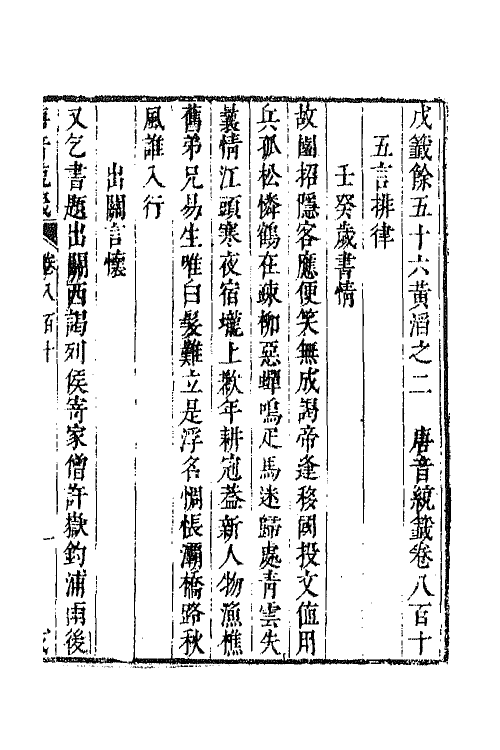 戊籖餘五十六黄滔之二　唐音統籖卷八百十
五言排律
壬癸歳書情
故園招隱客應便笑無成謁帝逢移國投文值用
兵孤松憐鶴在疎柳惡蟬鳴疋馬迷歸處青雲失
曩情江頭寒夜宿壠上歉年耕冦蓋新人物漁樵
舊弟兄易生唯白髮難立是浮名惆悵灞橋路秋
風誰入行
出關言懷
又乞書題出關西謁列侯寄家僧許嶽釣浦雨後
卷八百十　一